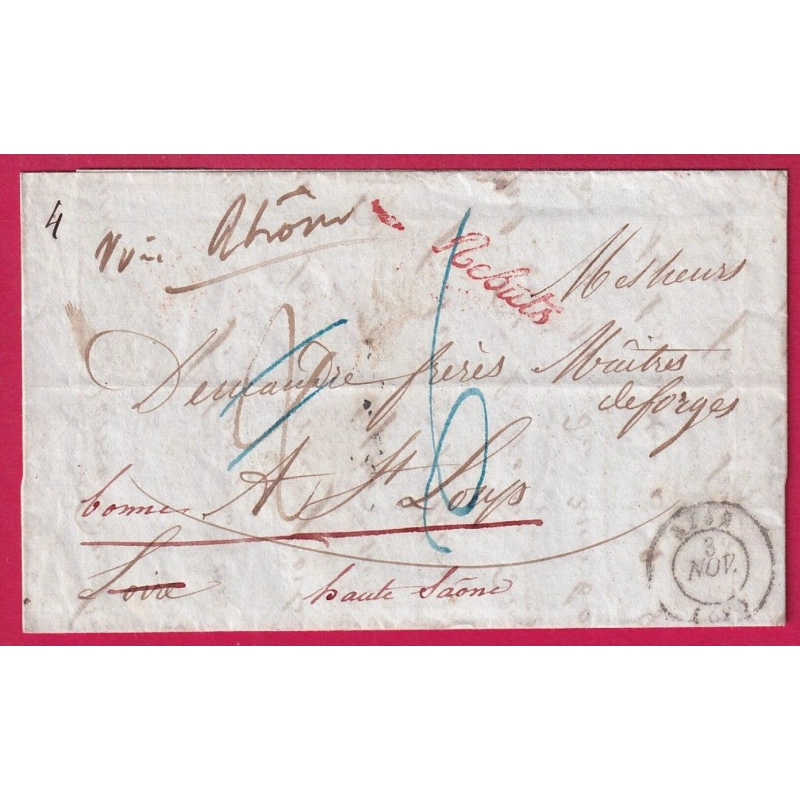 4
Voir Rhône
Rebuts
Messieurs
Demandre frères Maîtres
deforges
6
A St Loup
bonne
Loire
haute Saône
3
NOV.